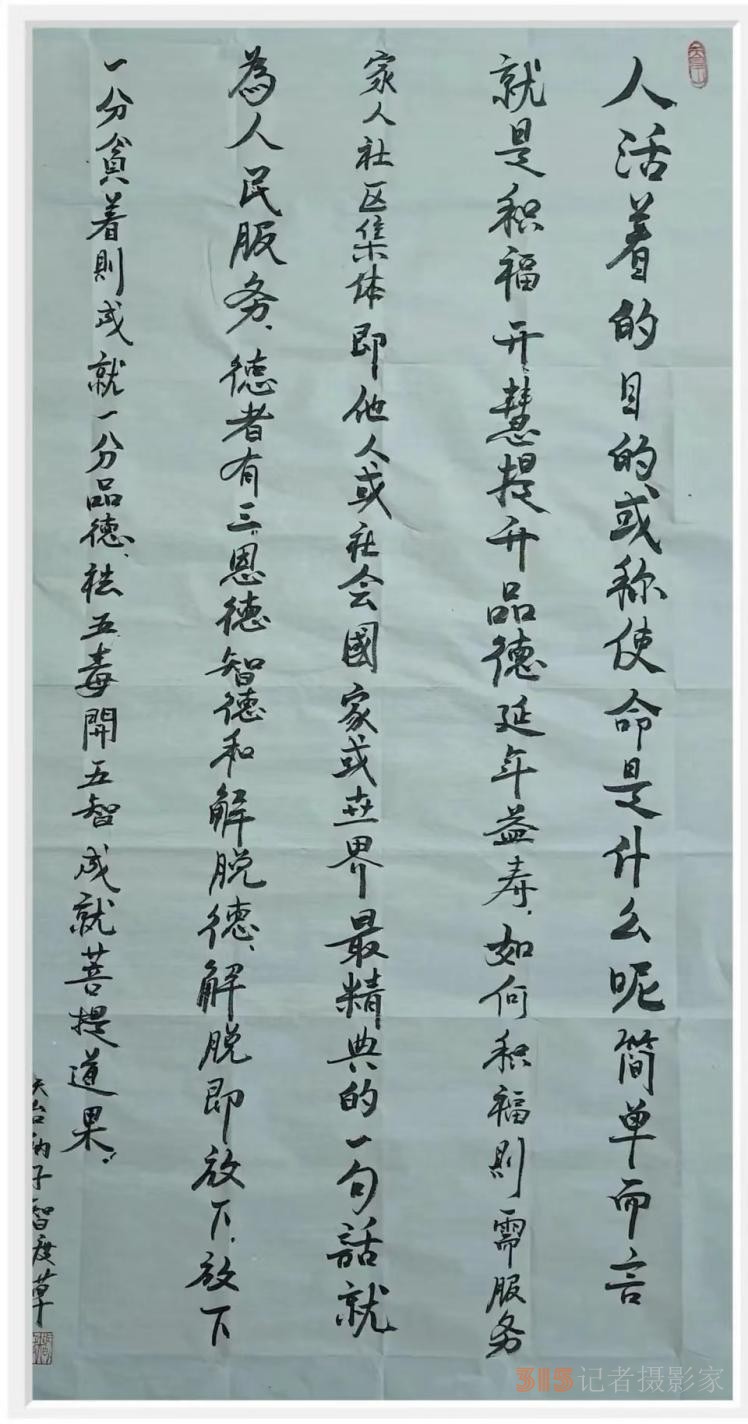 人活着的目的或称使命是什么呢简单而言
就是积福开慧提升品德延年益寿、如何积福則需服务
家人社区集体即他人或社会國家或世界最精典的一句話就
為人民服务、德者有三、恩德智德和解脱德、解脱即放下、放下
一分貪着則成就一分品德、祛五毒開五智成就菩提道果。
天台衲子智度草
315记者摄影家